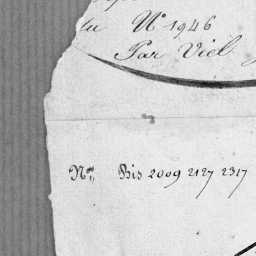 du N° 1946
Par Viel
N.os Bis 2009 2127 2317